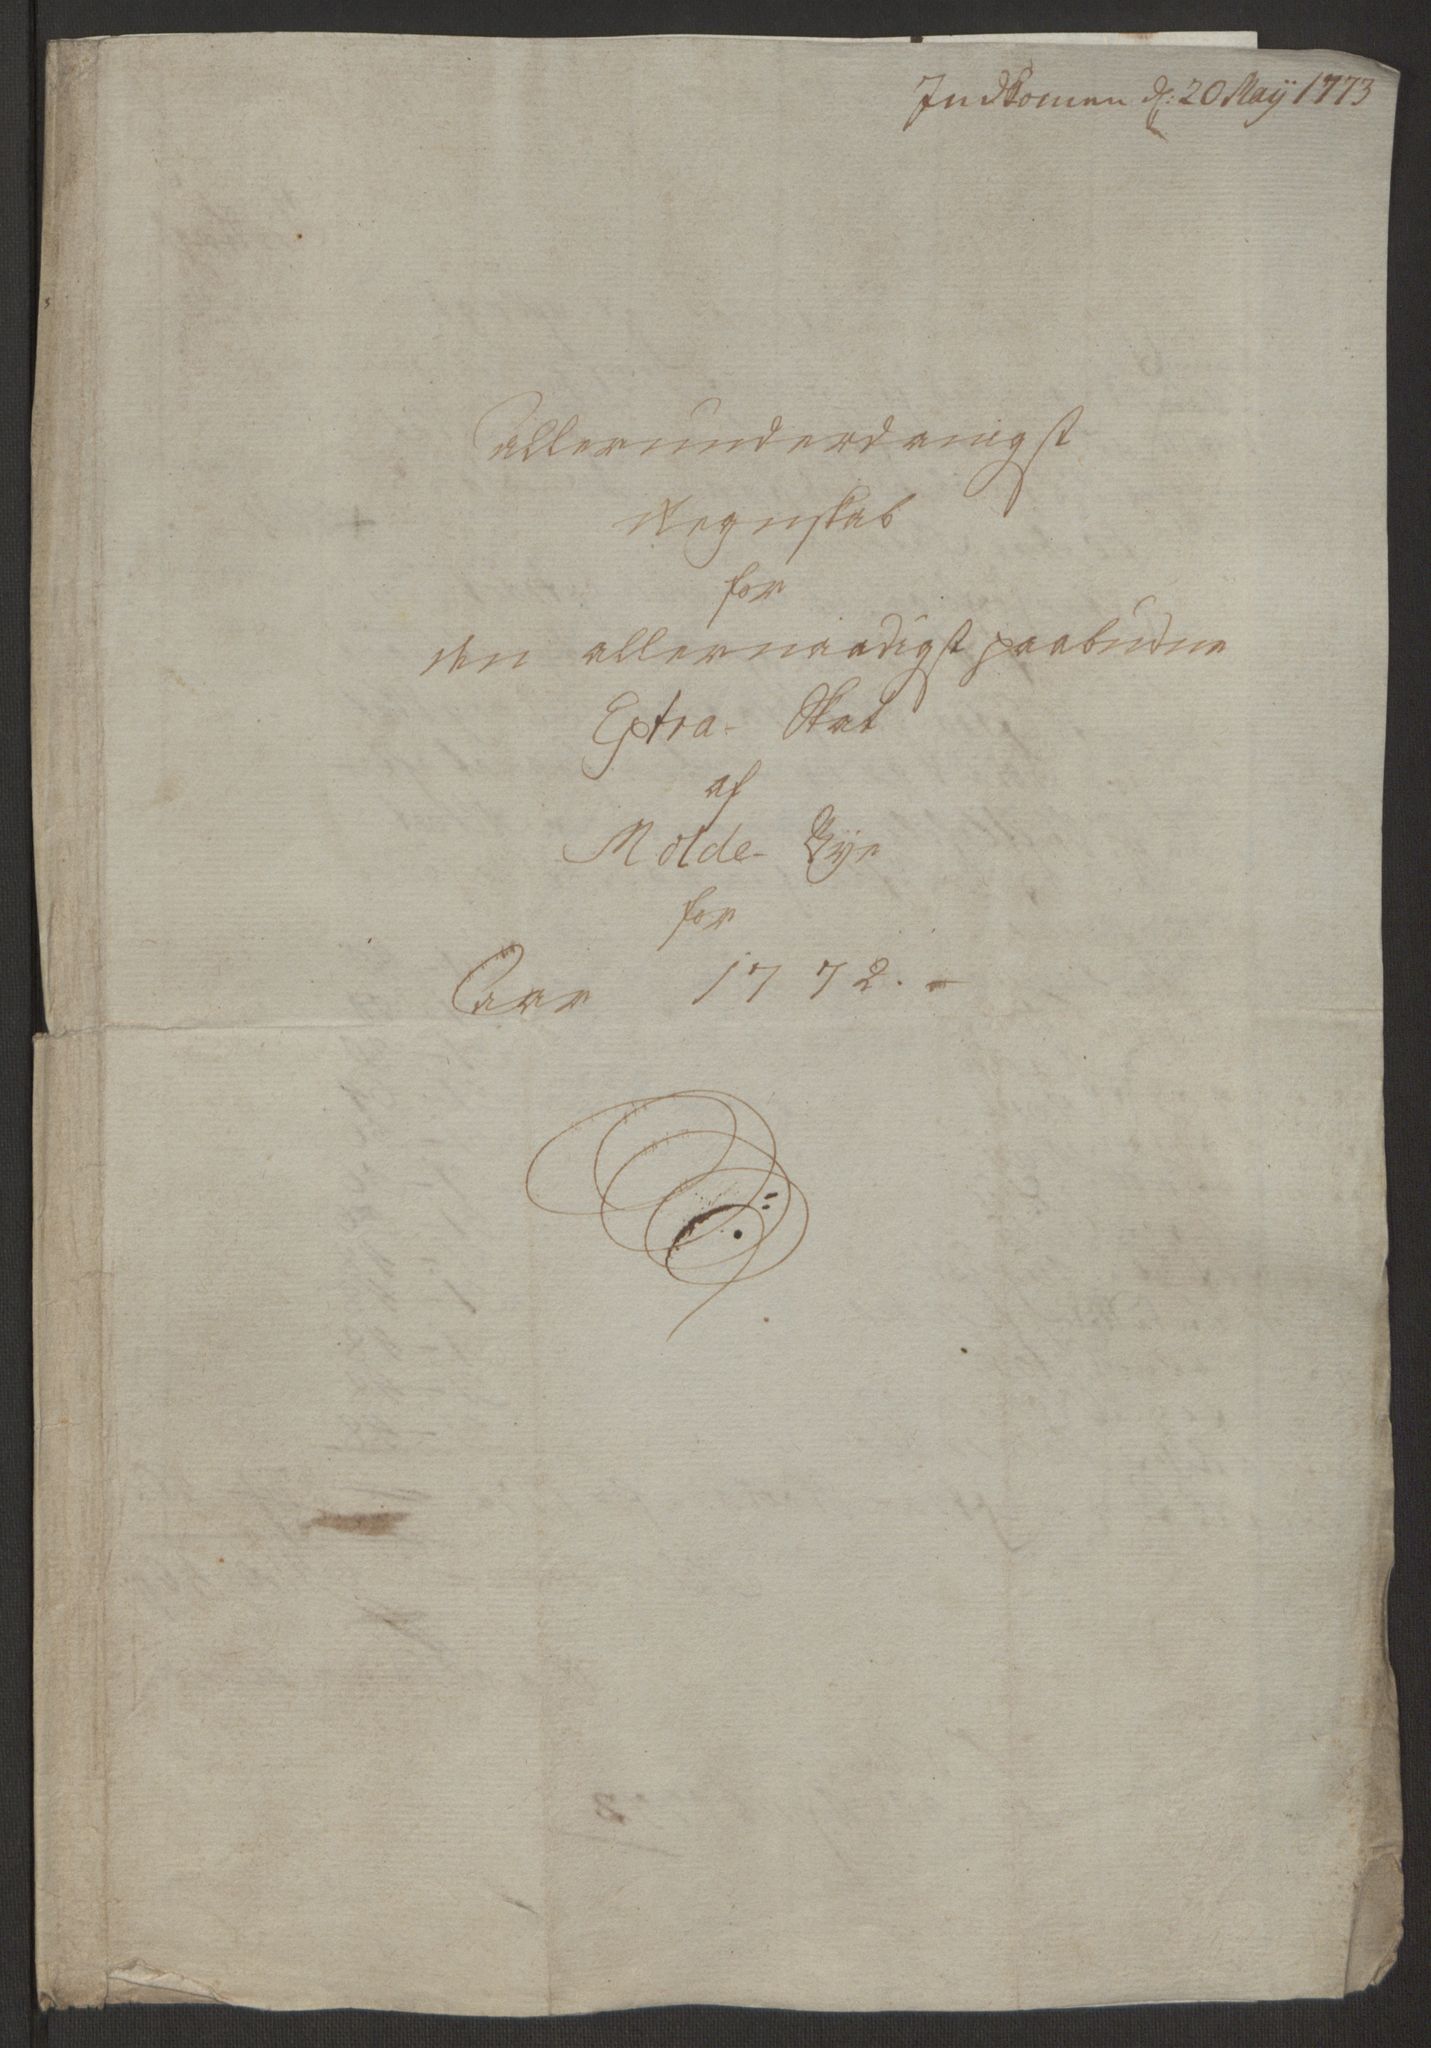 Indkomen d: 20 Maÿ 1773
Allerunderdanigst
Regnskab
for
den allernaadigst paabudne
Extra- Skat
af
Molde- Bÿe
for
Aar 1772.-